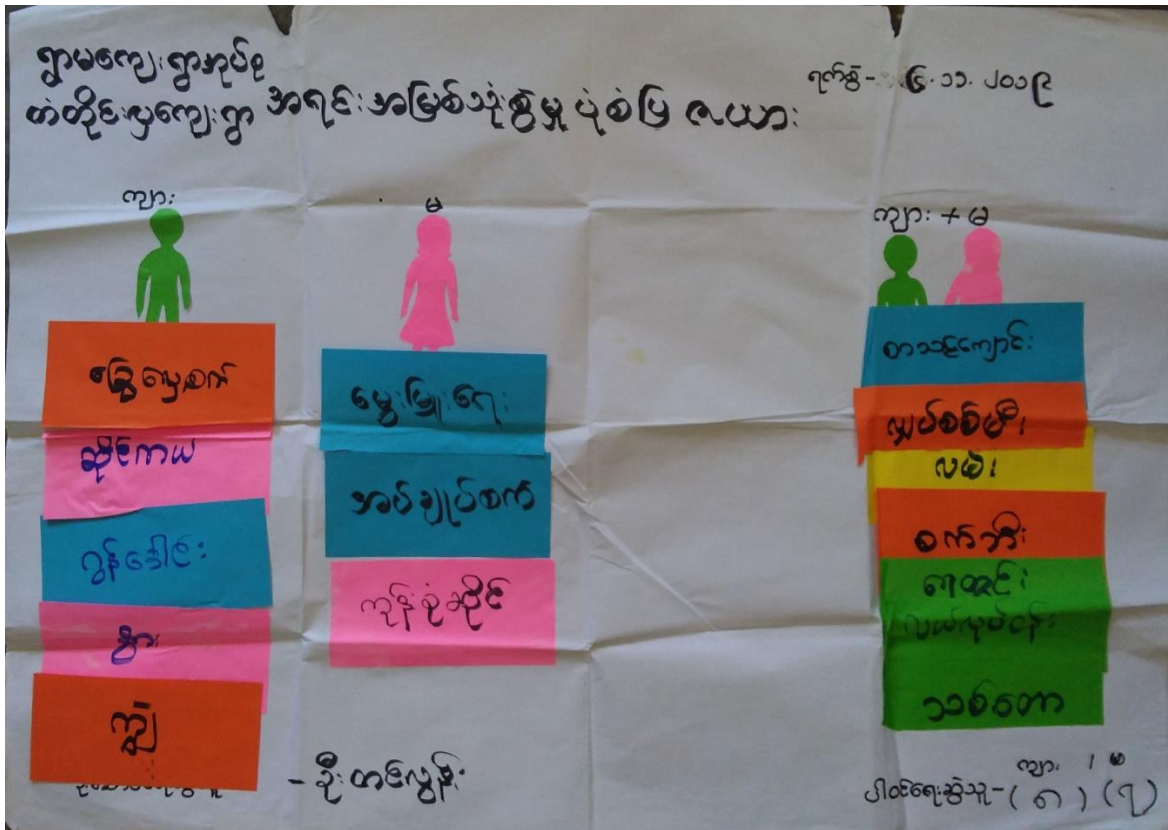 ရွာမကျေးရွာအုပ်စု
တံတိုင်းလှကျေးရွာ အရင်းအမြစ်သုံးစွဲမှု ပုံစံပြ ဇယား
ရက်စွဲ- ၆.၁၁.၂၀၁၉
ကျား
မ
ကျား + မ
ခြွေလှေ့စက်
ဆိုင်ကယ်
ဂွန်ဒေါင်း
နွား
ကျွဲ
မွေးမြူရေး
အပ်ချုပ်စက်
ကုန်စုံဆိုင်
စာသင်ကျောင်း
လျှပ်စစ်မီး
လမ်း
စက်ဘီး
ရေတွင်း
လယ်လုပ်ငန်း
သစ်တော
- ဦးတင်လွန်း
ပါဝင်ရေးဆွဲသူ-
ကျား / မ
(၈) (၇)